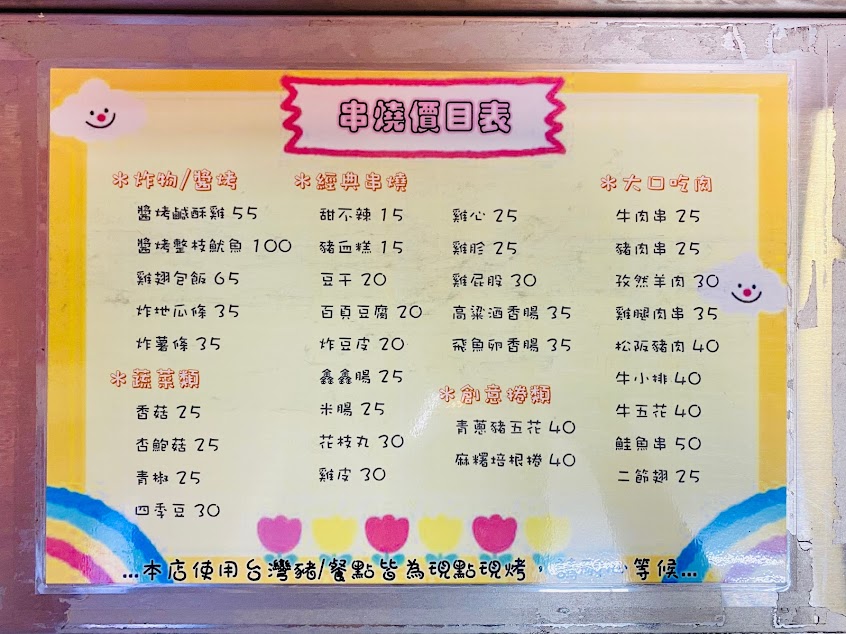 串燒價目表
＊炸物/醬烤
醬烤鹹酥雞 55
醬烤整枝魷魚 100
雞翅包飯 65
炸地瓜條 35
炸薯條 35
＊蔬菜類
香菇 25
杏鮑菇 25
青椒 25
四季豆 30
＊經典串燒
甜不辣 15
豬血糕 15
豆干 20
百頁豆腐 20
炸豆皮 20
鑫鑫腸 25
米腸 25
花枝丸 30
雞皮 30
雞心 25
雞胗 25
雞屁股 30
高粱酒香腸 35
飛魚卵香腸 35
＊創意捲類
青蔥豬五花 40
麻糬培根捲 40
＊大口吃肉
牛肉串 25
豬肉串 25
孜然羊肉 30
雞腿肉串 35
松阪豬肉 40
牛小排 40
牛五花 40
鮭魚串 50
二節翅 25
...本店使用台灣豬/餐點皆為現點現烤，等候...